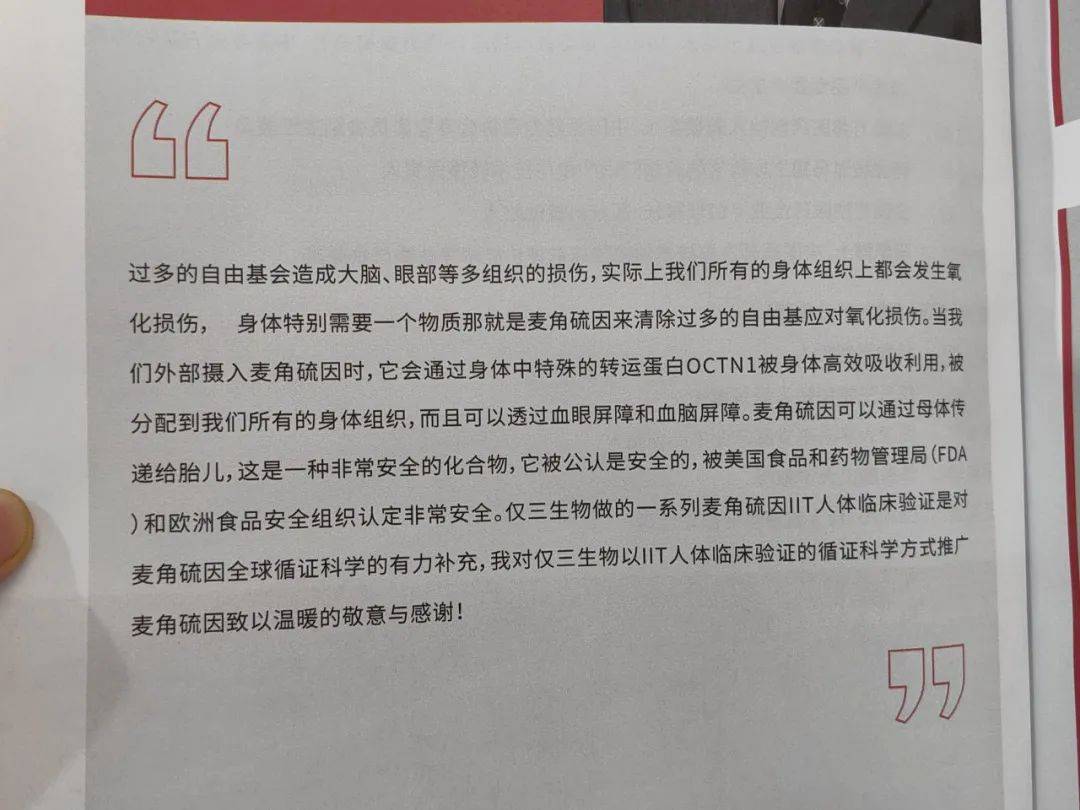 过多的自由基会造成大脑、眼部等多组织的损伤，实际上我们所有的身体组织上都会发生氧
化损伤， 身体特别需要一个物质那就是麦角硫因来清除过多的自由基应对氧化损伤。当我
们外部摄入麦角硫因时，它会通过身体中特殊的转运蛋白OCTN1被身体高效吸收利用，被
分配到我们所有的身体组织，而且可以透过血眼屏障和血脑屏障。麦角硫因可以通过母体传
递给胎儿，这是一种非常安全的化合物，它被公认是安全的，被美国食品和药物管理局（FDA
）和欧洲食品安全组织认定非常安全。仅三生物做的一系列麦角硫因IIT人体临床验证是对
麦角硫因全球循证科学的有力补充，我对仅三生物以IIT人体临床验证的循证科学方式推广
麦角硫因致以温暖的敬意与感谢！